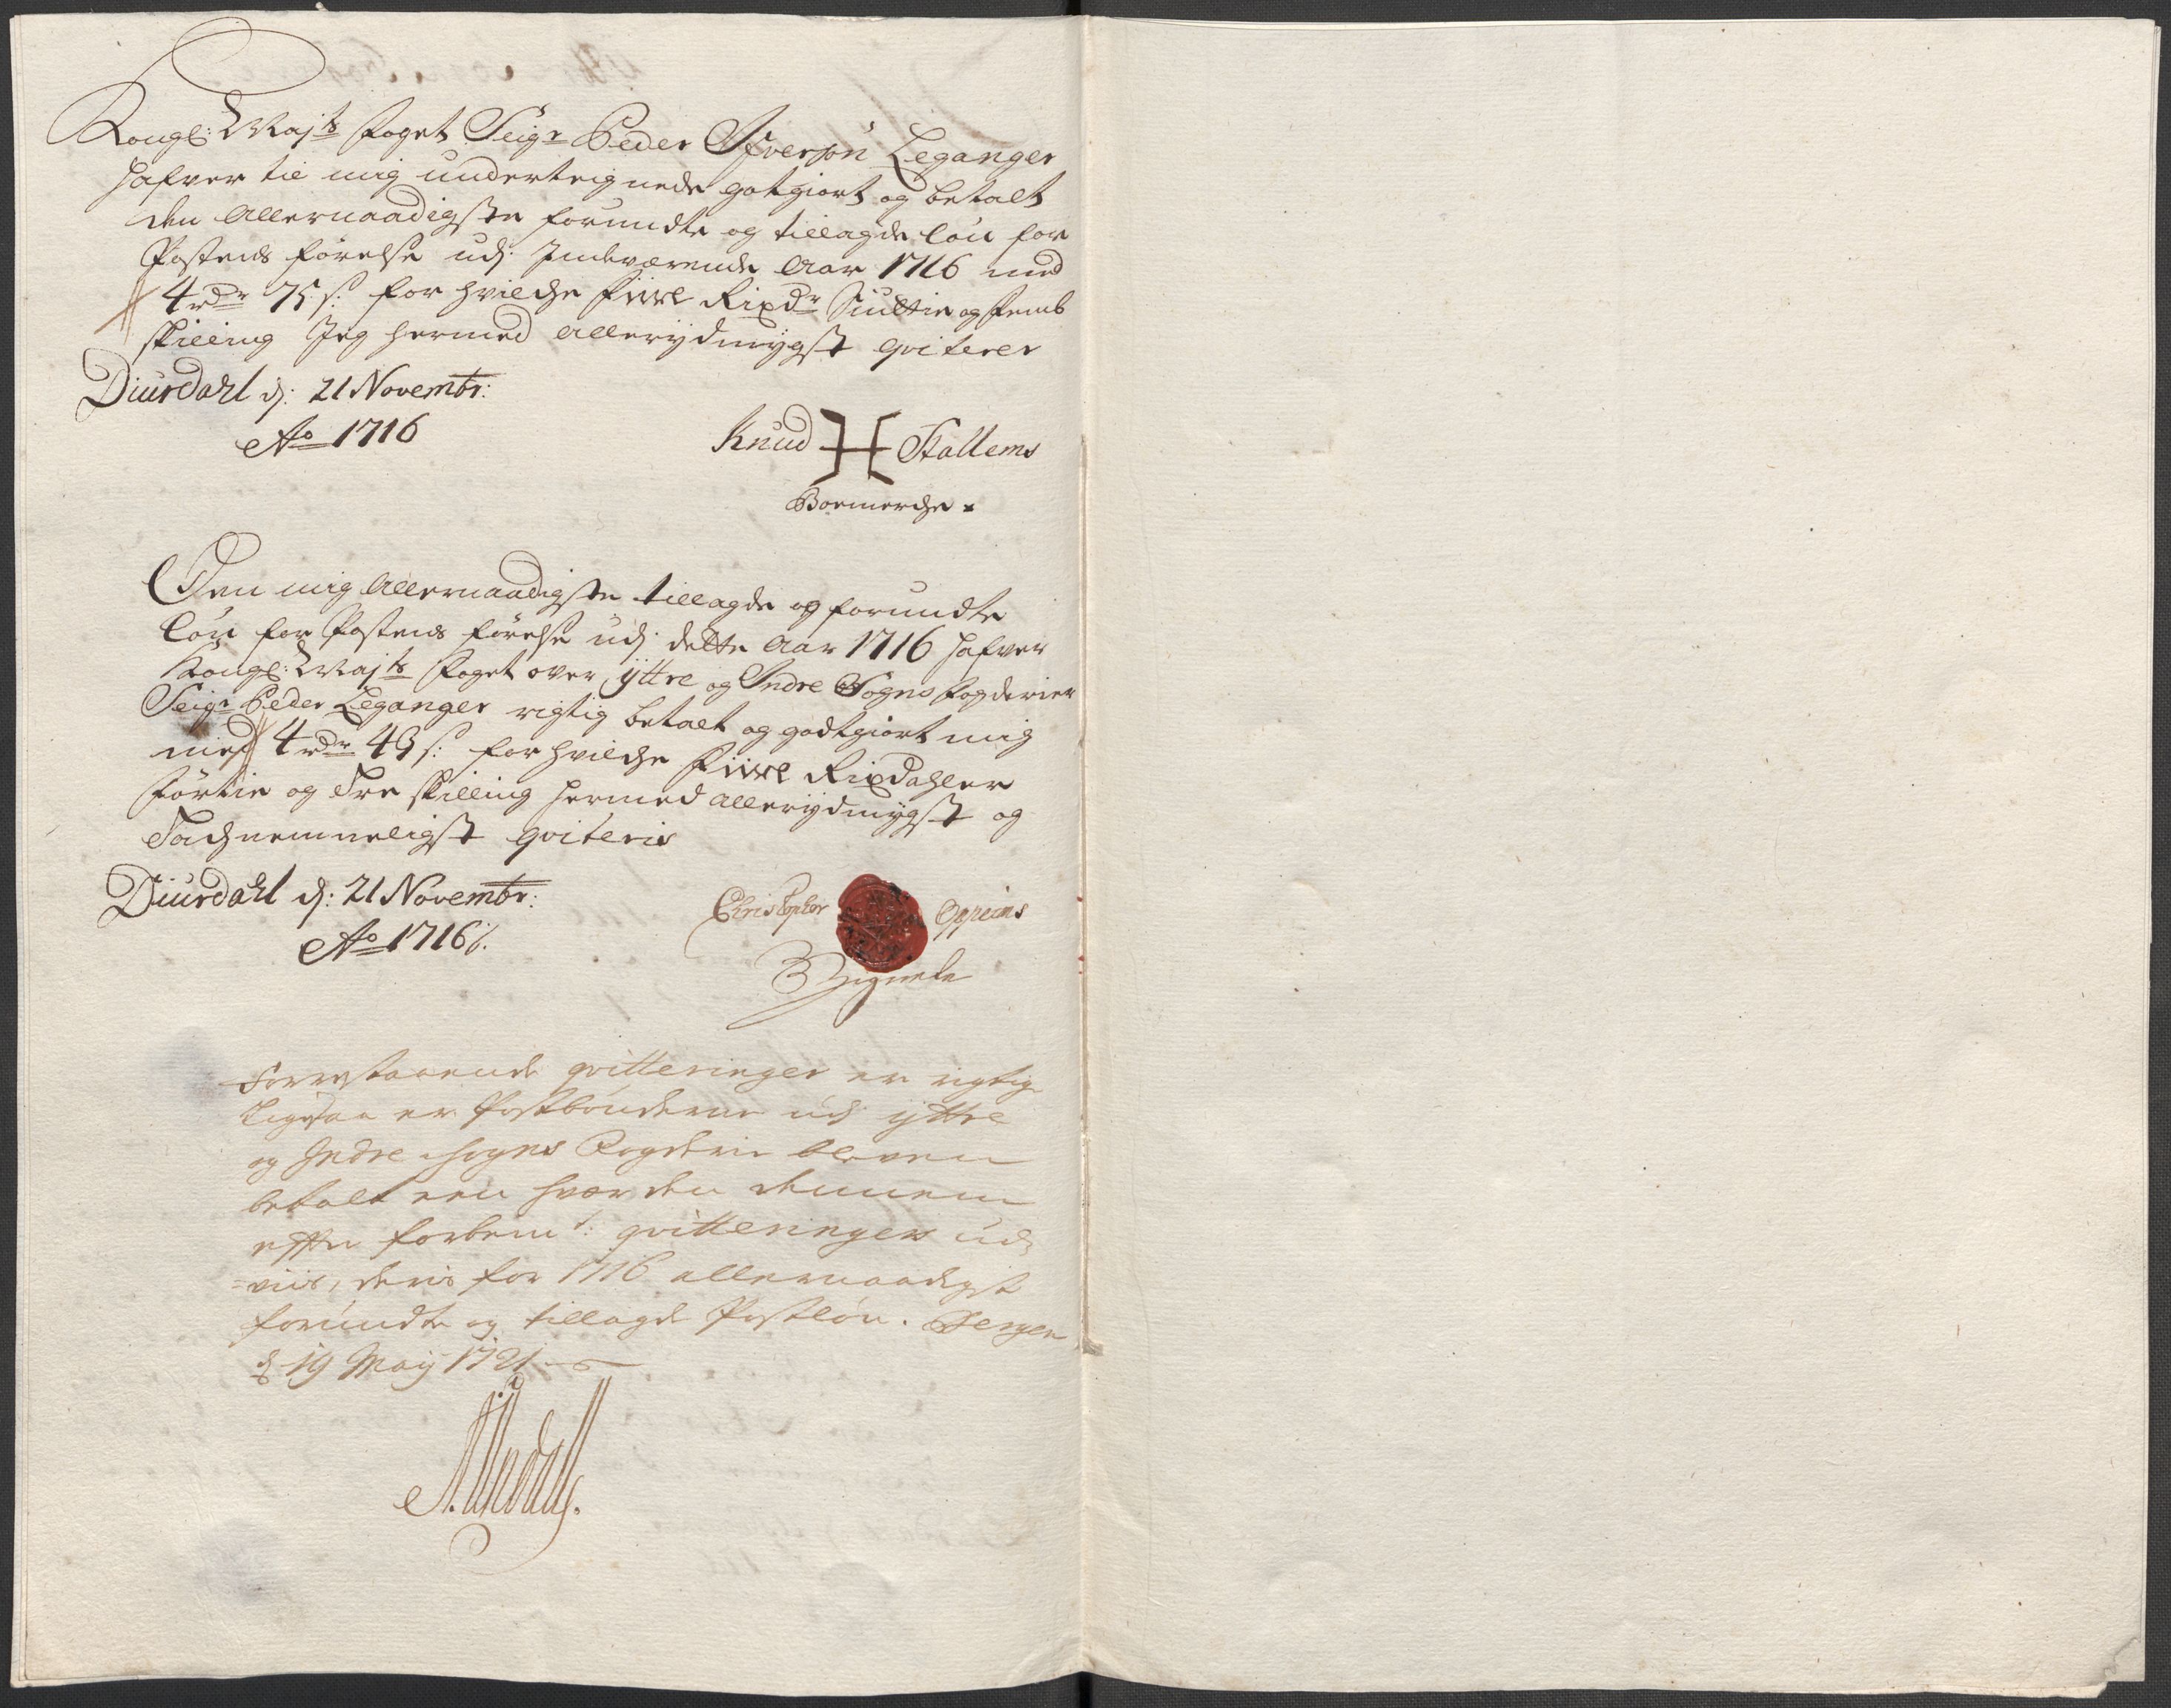 Kongl: Maj.ts foget Seig.r Peder Ifversøn Leganger
hafver til mig underteignede gotgiort og betalt
den allernaadigste forundte og tillagde løn for
Postens førelse udj Indeværende Aar 1716 med
4 rdr 75 s: for hvilche Fiire Rixdr Siuttie og femb
skilling Jeg hermed allerydmygst qviterer
Diurdahl d: 21 Novembr:
Ao 1716
Knud Stallems
Boemerche
Den mig allernaadigste tillagde og forundte
løn for Postens førelse udj dette Aar 1716 hafver
Kongl: Maj.ts foget over yttre og Indre Sogns fogderier
Seig.r Peder Leganger rigtig betalt og godtgiort mig
med 4 rdr 43 s: for hvilche Fiire Rixdahler
førtie og Tre skilling hermed allerydmygst og
Tachnemmeligst qviteris
Diurdahl d: 21 Novembr:
Ao 1716
Christopher
Signete
Forrestaaende qvitteringer er rigtig
ligesaa er Postbønderne udj yttre
og Indre Sogns Fogderie bleven
betalt een hver den dennem
effter forbem.t qvitteringers ud
=viis, deris for 1716 allernaadigst
forundte og tillagde Postløn. Bergen
d 19 Maij 1721